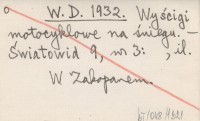 W. D. 1932. Wyścigi
motocyklowe na śniegu. –
Światowid 9, nr 3: , il.
W Zakopanem.